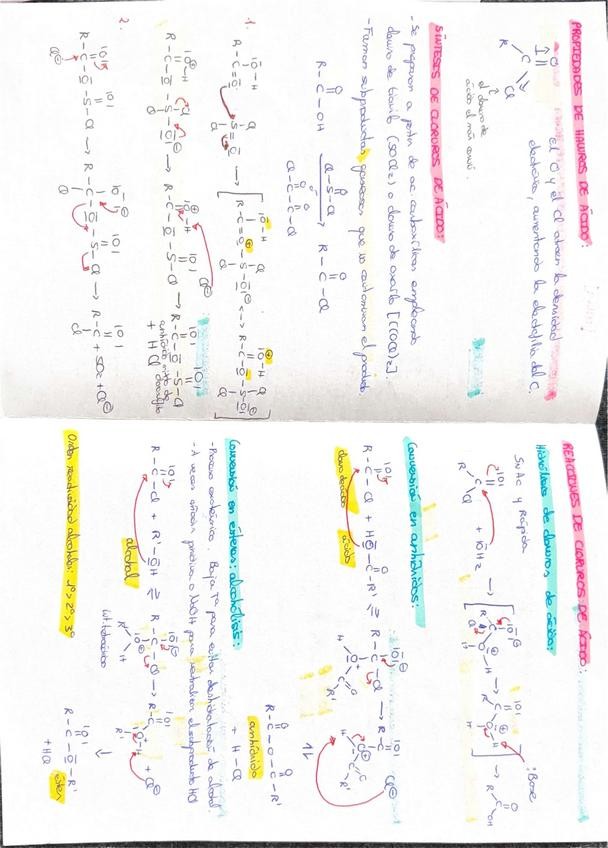 PROPIEDADES DE HALUROS DE ÁCIDO:
el O y el Cl atraen la densidad
electrónica, aumentando la electrofilia del C.
R C O Cl
el cloruro de
ácido el más común
SÍNTESIS DE CLORUROS DE ÁCIDO:
- Se preparan a partir de ác. carboxílicos empleando
cloruro de tionilo (SOCl2) o cloruro de oxalilo [(COCl)2].
- Forman subproductos gaseosos que no contaminan el producto.
R-C-OH
Cl-S-Cl
Cl-C-C-Cl
R-C-Cl
1.
anhídrido mixto de
+ HCl
2.
+ SO2 + Cl⊖
REACCIONES DE CLORUROS DE ÁCIDO:
Hidrólisis de cloruros de ácido:
SNAc y Rápida
:Base
Conversión en anhídridos:
R-C-Cl + HO-C-R'
cloruro de ácido
ácido
anhídrido
+ H-Cl
Conversión en ésteres: alcohólisis:
- Proceso exotérmico. Baja Tª para evitar deshidratación de alcohol.
- A veces añaden piridina o NaOH para neutralizar el subproducto HCl
R-C-Cl + R'-OH
alcohol
int. tetraédrico
+ Cl⊖
R-C-O-R'
+ HCl
éster
Orden reactividad alcoholes: 1º > 2º > 3º